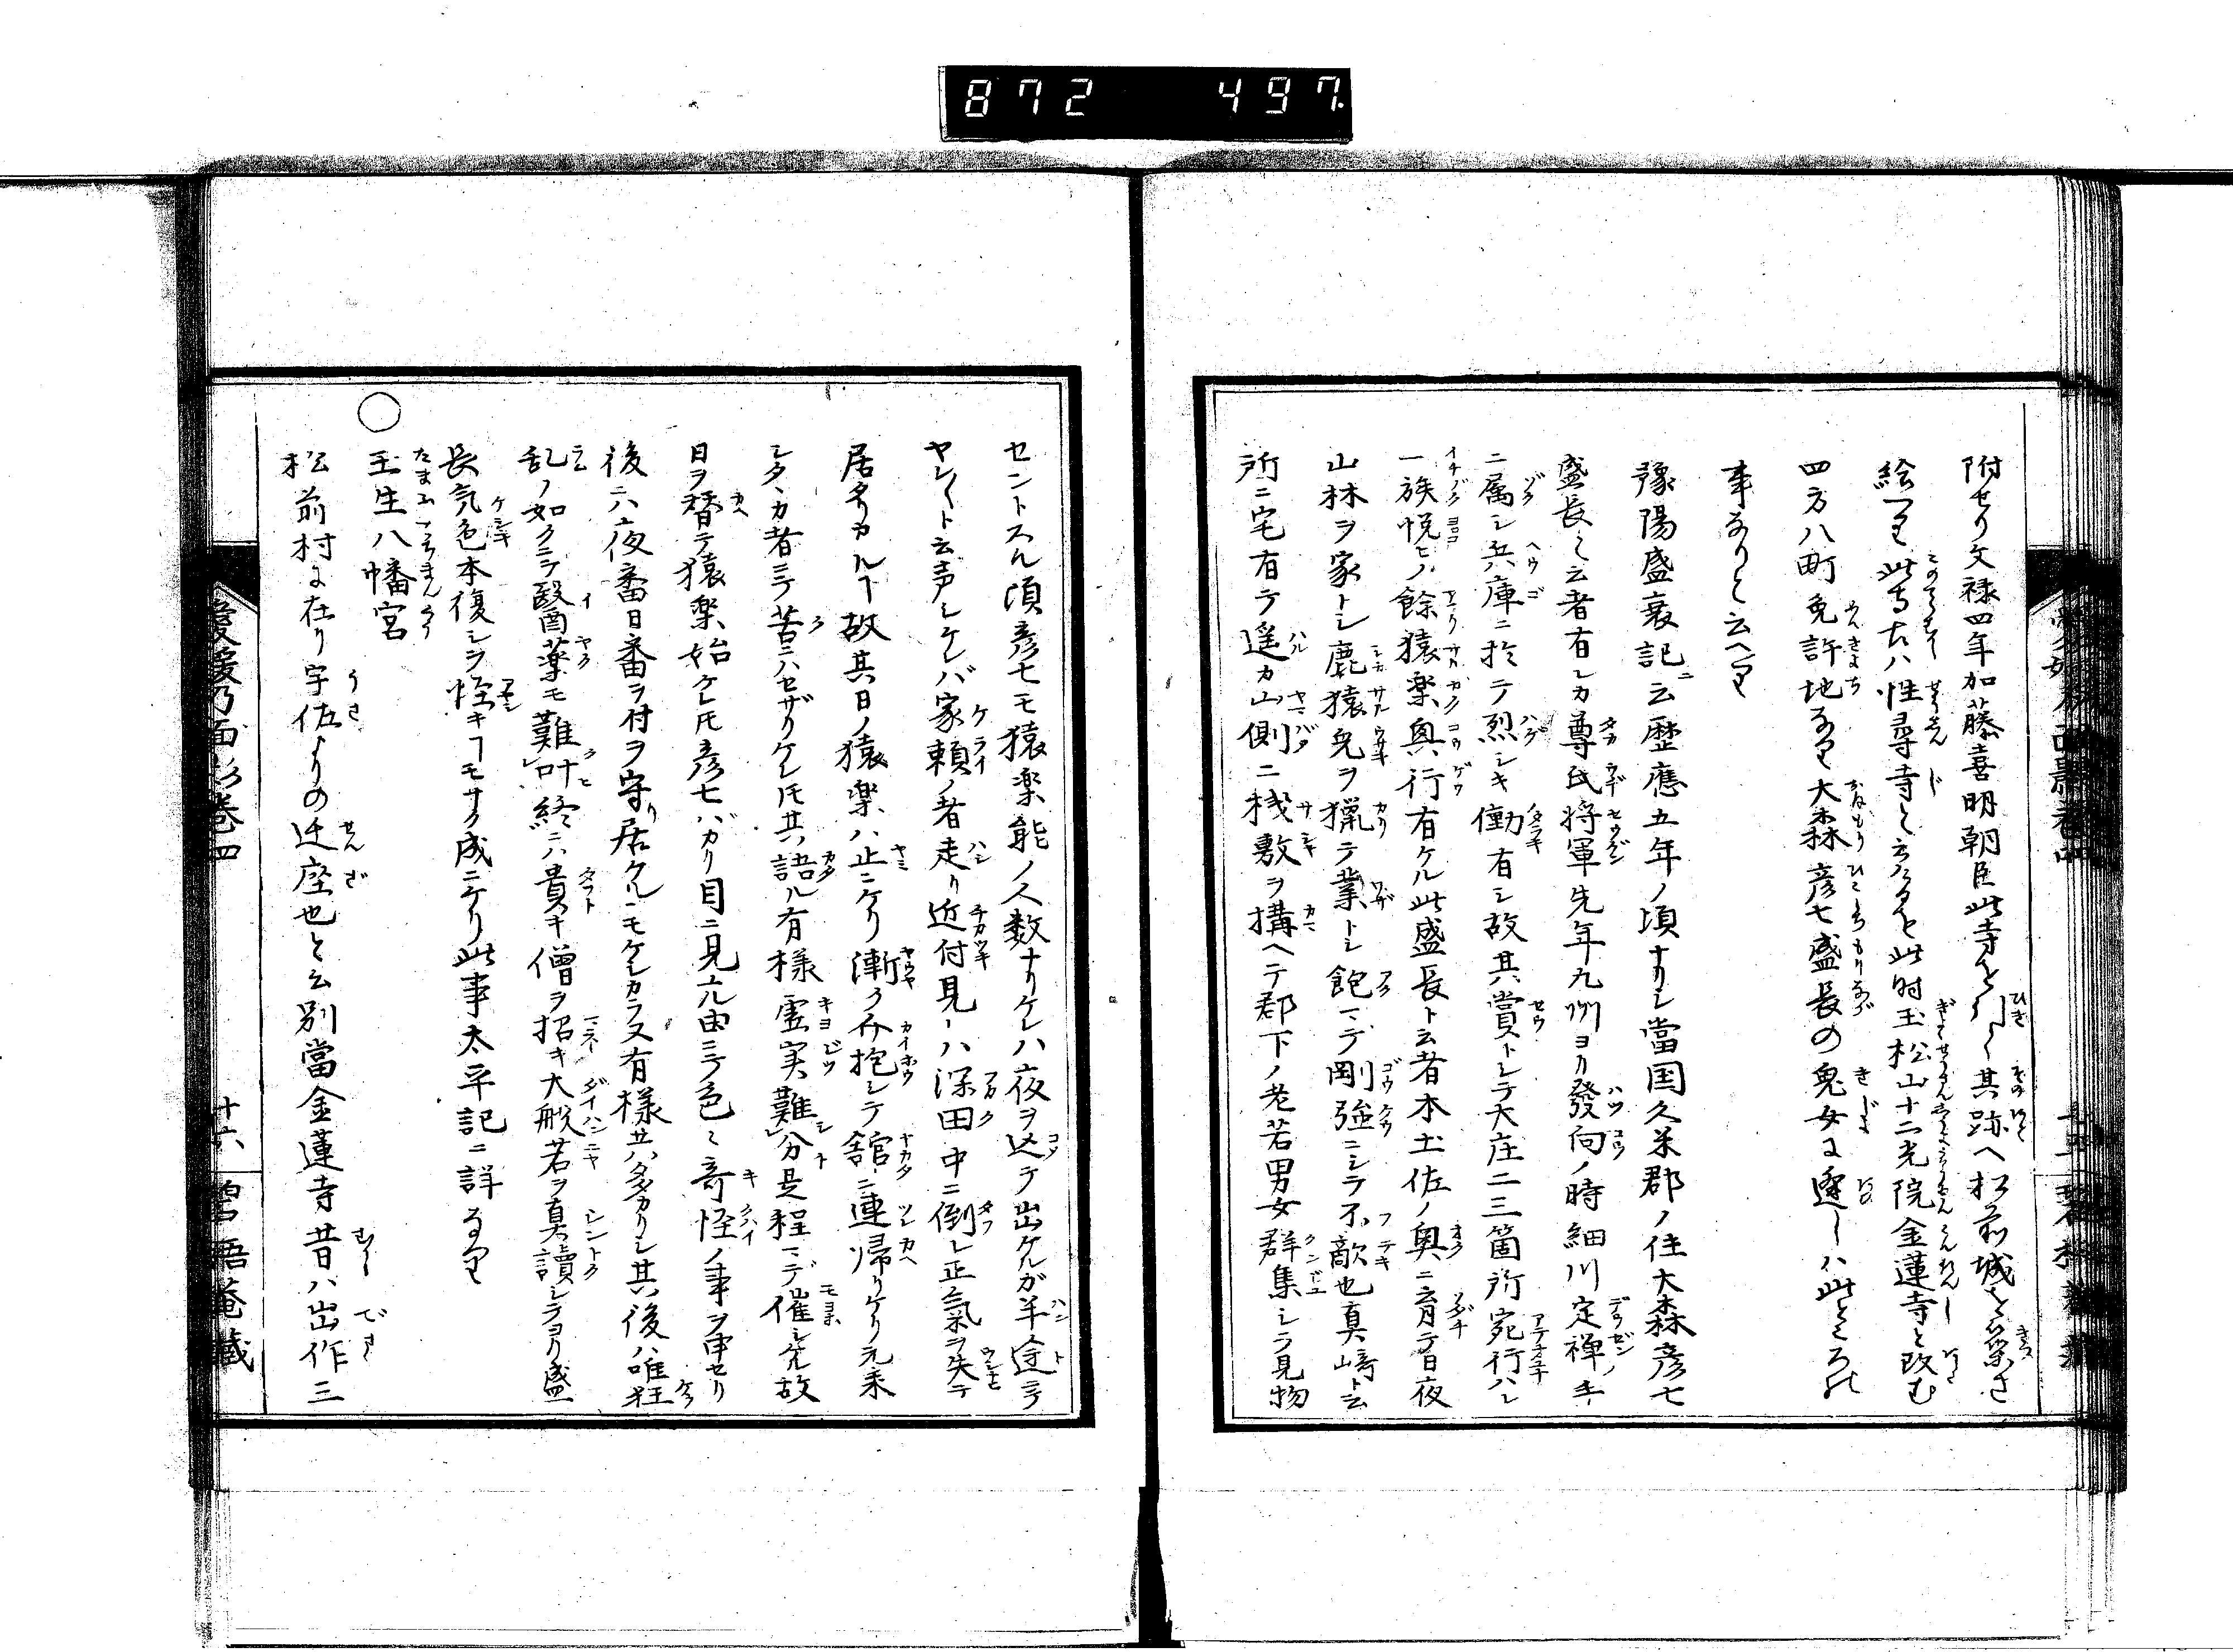 872 497
附せり文禄四年加藤喜明朝臣此寺を引く其跡へ松前城を築き
給へり此寺古ハ性尋寺と云るを此時玉松山十二光院金蓮寺と改む
四方八町免許地なり大森彦七盛長の鬼女に逢しハ此ところの
事なりと云へり
豫陽盛衰記ニ云歴應五年ノ頃ナリシ當国久米郡ノ住大森彦七
盛長ト云者有シカ尊氏将軍先年九州ヨリ發向ノ時細川定禅ノ手
ニ属シ兵庫ニ於テ烈シキ働有シ故其賞トシテ大庄二三箇所宛行ハレ
一族悦ヒノ餘猿楽興行有ケル此盛長ト云者本土佐ノ奥ニ育テ日夜
山林ヲ家トシ鹿猿兎ヲ猟テ業トシ飽マデ剛強ニシテ不敵也真﨑ト云
所ニ宅有テ遥カ山側ニ桟敷ヲ搆ヘテ郡下ノ老若男女群集シテ見物
セントスル頃彦七モ猿楽能ノ人数ナリケレハ夜ヲ込テ出ケルガ半途ニテ
ヤレ〳〵ト云声シケレバ家頼ノ者走リ近付見レハ深田中ニ倒レ正氣ヲ失テ
居タリカルヿ故其日ノ猿楽ハ止ニケリ漸々介抱シテ舘ニ連帰リケリ元来
シタヽカ者ニテ苦ニハセザリケレ𪜈其語ル有様虚実難分是程マデ催シケル故
日ヲ替テ猿楽始ケレ𪜈彦七バカリ目ニ見ル由ニテ色々奇怪ノ事ヲ申セリ
後ニハ夜番日番ヲ付ヲ守リ居ケルニモケシカラヌ有様共多カリシ其後ハ唯狂
乱ノ如クニテ醫薬モ難叶終ニハ貴キ僧ヲ招キ大般若ヲ真讀シテヨリ盛
長気色本復シテ怪キヿモナク成ニケリ此事太平記ニ詳なり
○玉生八幡宮
松前村に在り宇佐よりの迁座也と云別當金蓮寺昔ハ出作三
愛媛乃面影巻四 十六 碧梧菴藏